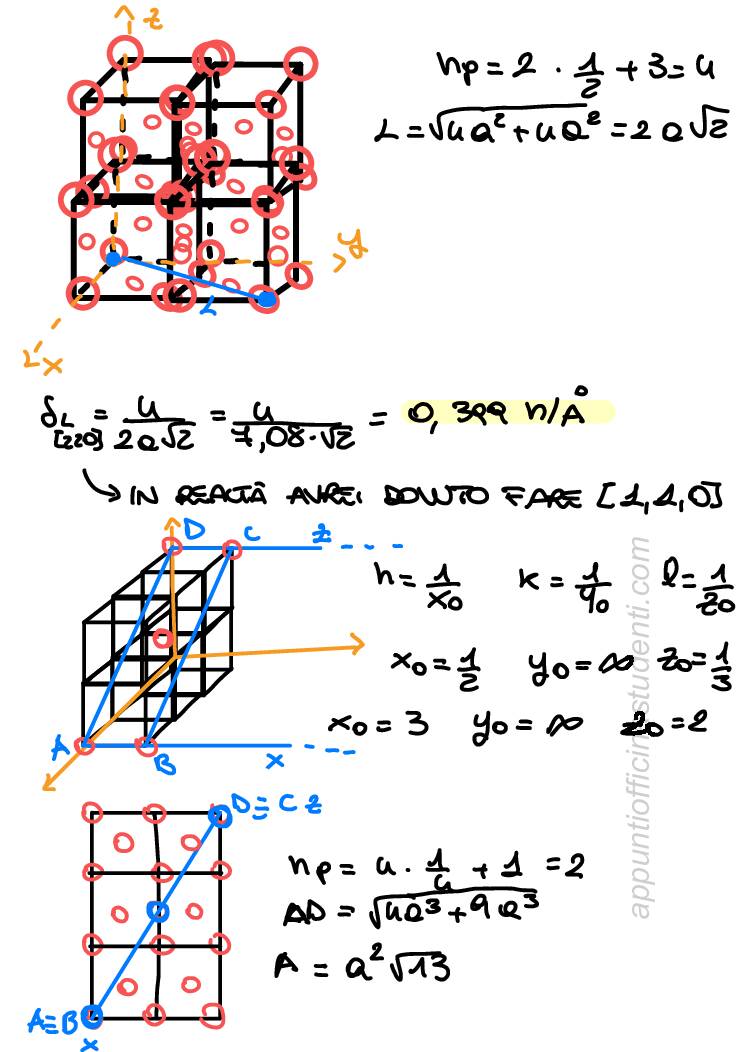 z
np = 2 · 1/2 + 3 = 4
L = √4a² + 4a² = 2a√2
y
L
x
δL [220] = 4/2a√2 = 4/7,08·√2 = 0,399 n/Å
IN REALTÀ AVREI DOVUTO FARE [1,1,0]
D C z
h = 1/x₀ k = 1/y₀ l = 1/z₀
x₀ = 1/2 y₀ = ∞ z₀ = 1/3
x₀ = 3 y₀ = ∞ z₀ = 2
A B x
D≡C z
np = 4 · 1/4 + 1 = 2
AD = √4a³ + 9a³
A = a²√13
A≡B
x
appuntiofficinastudenti.com